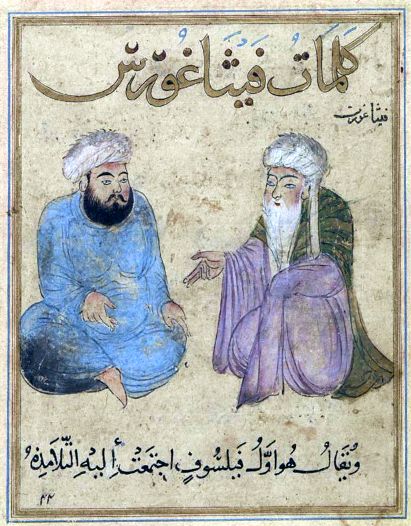 كلمات فيثاغورس
فيثاغورث
ويقال هو اوّل فيلسوفٍ اجتمعت إليه التّلامذه